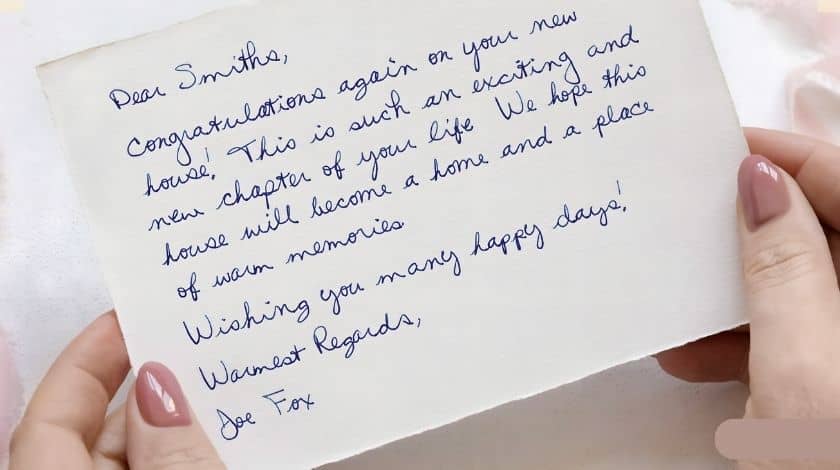 Dear Smiths,
Congratulations again on your new
house! This is such an exciting and
new chapter of your life We hope this
house will become a home and a place
of warm memories
Wishing you many happy days!
Warmest Regards,
Joe Fox